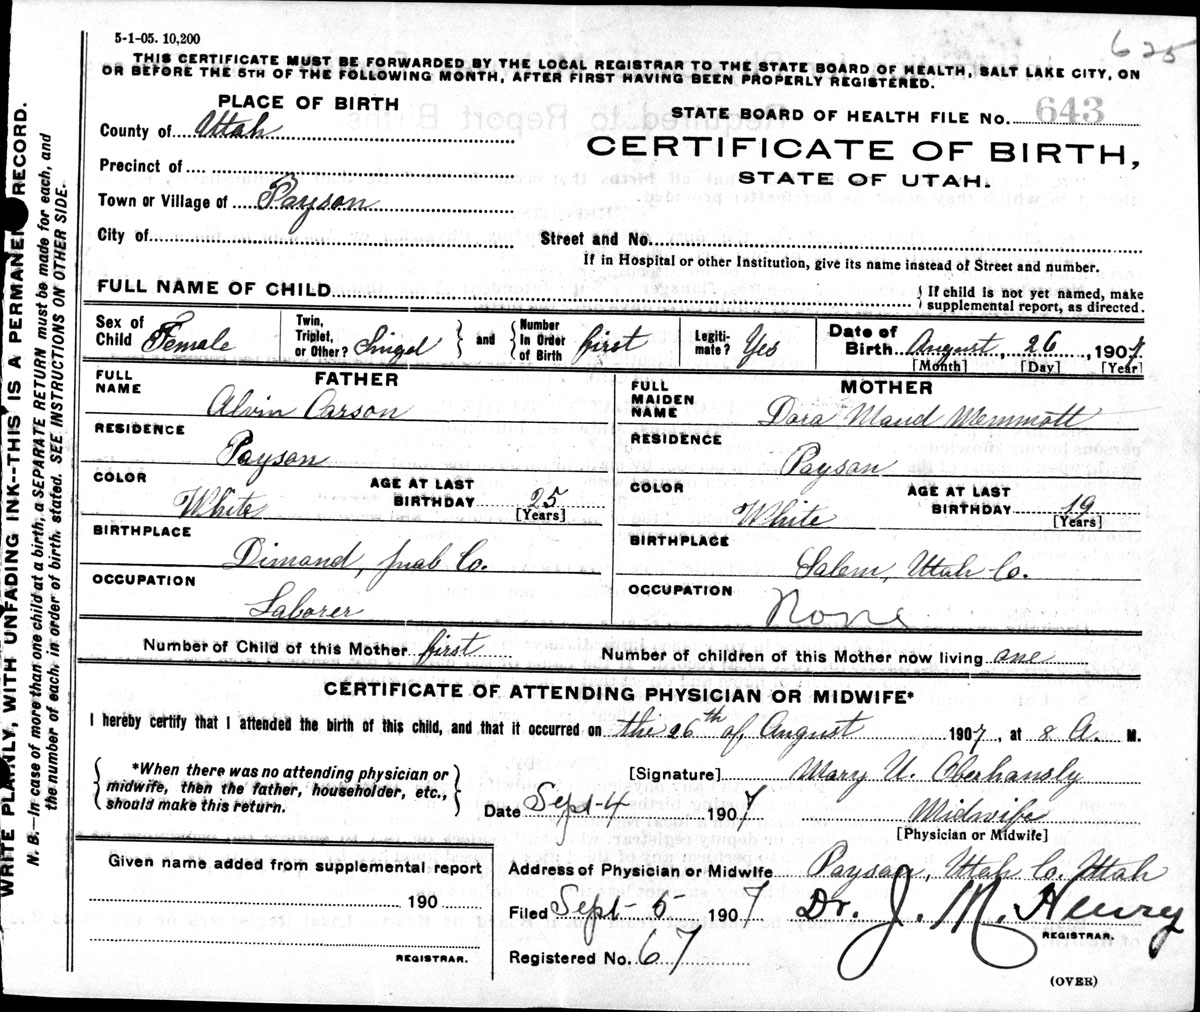 5-1-05. 10,200
625
THIS CERTIFICATE MUST BE FORWARDED BY THE LOCAL REGISTRAR TO THE STATE BOARD OF HEALTH, SALT LAKE CITY, ON
OR BEFORE THE 5TH OF THE FOLLOWING MONTH, AFTER FIRST HAVING BEEN PROPERLY REGISTERED.
PLACE OF BIRTH
STATE BOARD OF HEALTH FILE No. 643
County of Uttah
CERTIFICATE OF BIRTH,
Precinct of
STATE OF UTAH.
Town or Village of Payson
City of
Street and No.
If in Hospital or other Institution, give its name instead of Street and number.
FULL NAME OF CHILD
If child is not yet named, make
supplemental report, as directed.
Sex of
Child Female
Twin,
Triplet,
or Other? Singel
and
Number
In Order
of Birth first
Legiti-
mate? Yes
Date of
Birth August, 26, 1907
[Month] [Day] [Year]
FULL
NAME
FATHER
Alvin Carson
FULL
MAIDEN
NAME
MOTHER
Dora Maud Memmott
RESIDENCE
Payson
RESIDENCE
Payson
COLOR
White
AGE AT LAST
BIRTHDAY 25
[Years]
COLOR
White
AGE AT LAST
BIRTHDAY 19
[Years]
BIRTHPLACE
Dimand, Juab Co.
BIRTHPLACE
Salem, Utah Co.
OCCUPATION
Laborer
OCCUPATION
None
Number of Child of this Mother first
Number of children of this Mother now living one
CERTIFICATE OF ATTENDING PHYSICIAN OR MIDWIFE*
I hereby certify that I attended the birth of this child, and that it occurred on the 26th of August 1907, at 8 A. M.
*When there was no attending physician or
midwife, then the father, householder, etc.,
should make this return.
[Signature] Mary U. Oberhansly
Date Sept-4 1907
Midwife
[Physician or Midwife]
Given name added from supplemental report
190
REGISTRAR.
Address of Physician or Midwife Payson, Utah Co. Utah
Filed Sept-5- 1907
Dr. J. M. Henry
REGISTRAR.
Registered No. 67
(OVER)
WRITE PLAINLY, WITH UNFADING INK--THIS IS A PERMANENT RECORD.
N. B.—In case of more than one child at a birth, a SEPARATE RETURN must be made for each, and
the number of each, in order of birth, stated. SEE INSTRUCTIONS ON OTHER SIDE.